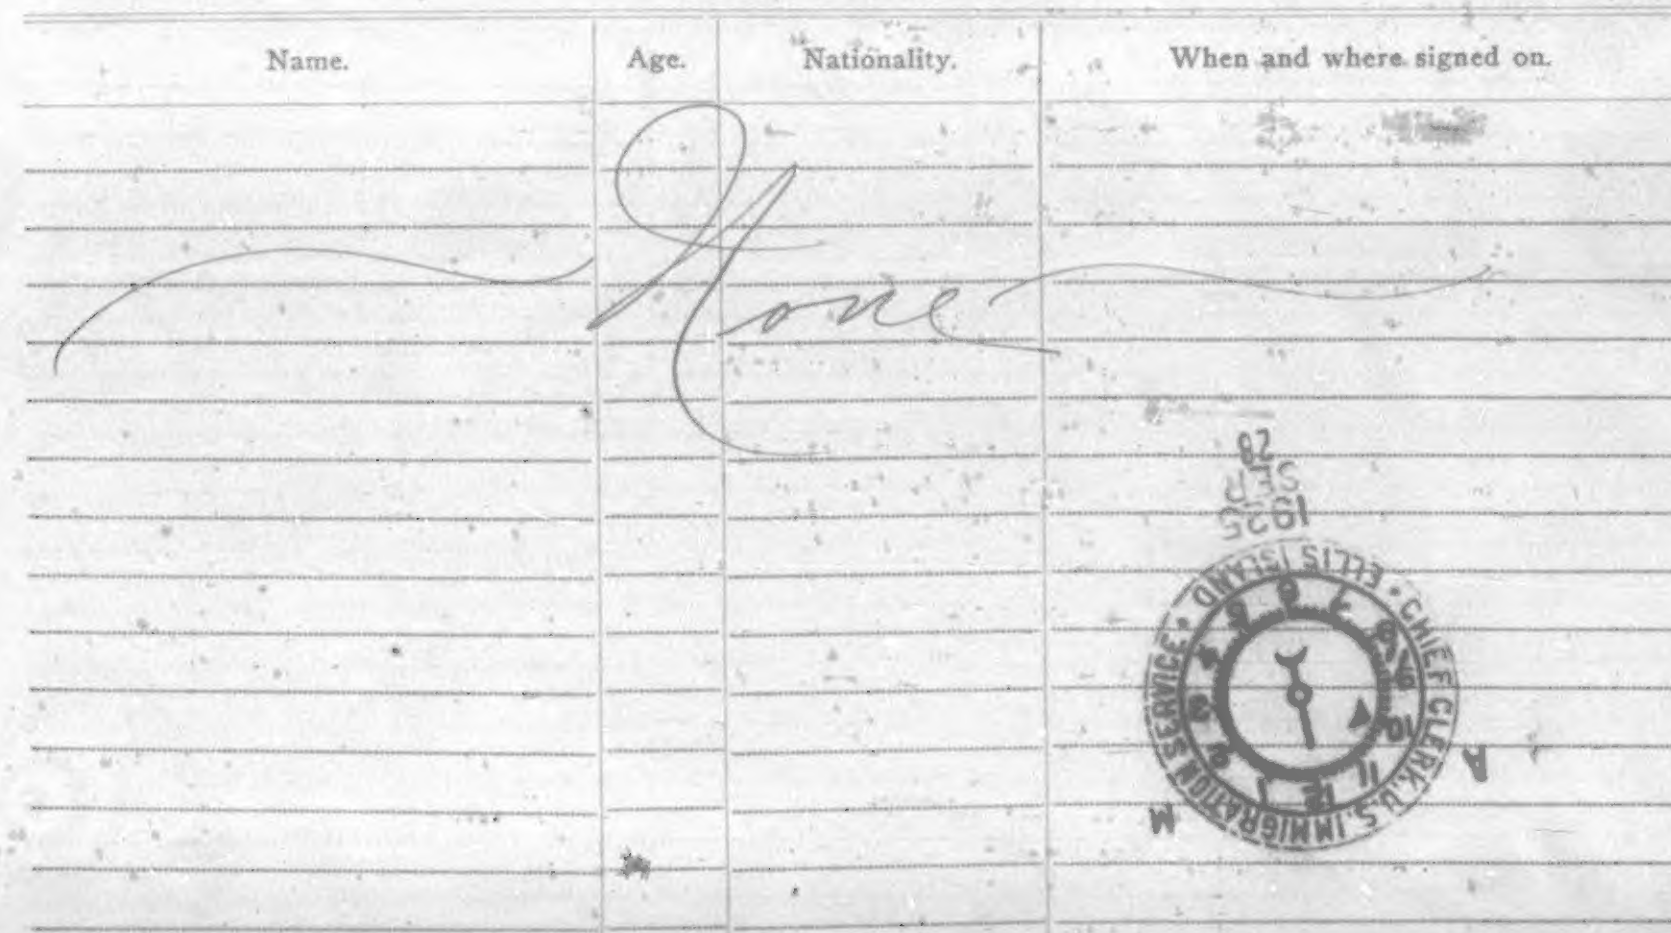 Name. Age. Nationality. When and where signed on.
None
28
SEP
1925
CHIEF CLERK, U.S. IMMIGRATION SERVICE • ELLIS ISLAND •
12 1 2 3 4 5 6 7 8 9 10 11
A M